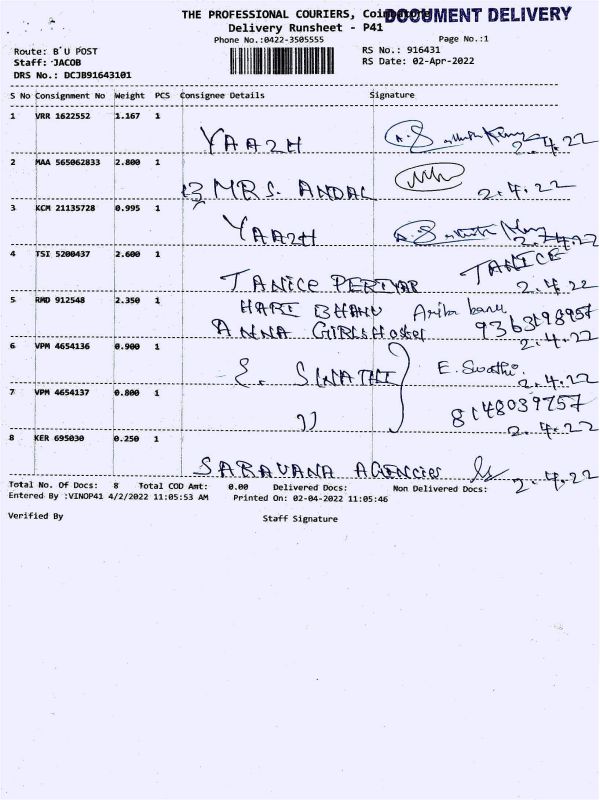 THE PROFESSIONAL COURIERS, Coimbatore
DOCUMENT DELIVERY
Delivery Runsheet - P41
Phone No.:0422-3505555
Page No.:1
Route: B U POST
RS No.: 916431
Staff: JACOB
RS Date: 02-Apr-2022
DRS No.: DCJB91643101
S No Consignment No Weight PCS Consignee Details Signature
1 VRR 1622552 1.167 1
YAAZH
2.4.22
2 MAA 565062833 2.800 1
MRS. ANDAL
2.4.22
3 KCM 21135728 0.995 1
YAAZH
2.4.22
4 TSI 5200437 2.600 1
TANICE PERIYAR TANICE
2.4.22
5 RMD 912548 2.350 1
HARI BHANU
ANNA GIRLS Hostel
2.4.22
6 VPM 4654136 0.900 1
E. SWATHI E. Swathi.
2.4.22
7 VPM 4654137 0.800 1
8148039757
2.4.22
8 KER 695030 0.250 1
SARAVANA AGENCIES
2.4.22
Total No. Of Docs: 8 Total COD Amt: 0.00 Delivered Docs: Non Delivered Docs:
Entered By :VINOP41 4/2/2022 11:05:53 AM Printed On: 02-04-2022 11:05:46
Verified By Staff Signature